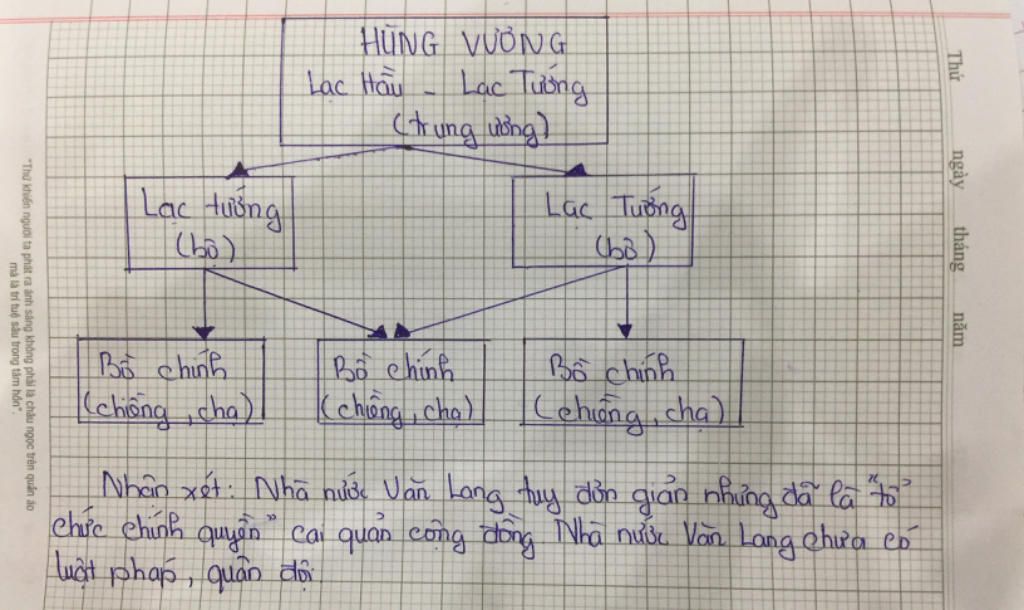 HÙNG VƯƠNG
Lạc Hầu - Lạc Tướng
(trung ương)
Lạc tướng
(bộ)
Lạc Tướng
(bộ)
Bồ chính
(chiềng, chạ)
Bồ chính
(chiềng, chạ)
Bồ chính
(chiềng, chạ)
Nhận xét: Nhà nước Văn Lang tuy đơn giản nhưng đã là "tổ
chức chính quyền" cai quản cộng đồng Nhà nước Văn Lang chưa có
luật pháp, quân đội
Thứ ngày tháng năm
"Thứ khiến người ta phát ra ánh sáng không phải là châu ngọc trên quần áo
mà là trí tuệ sâu trong tâm hồn".